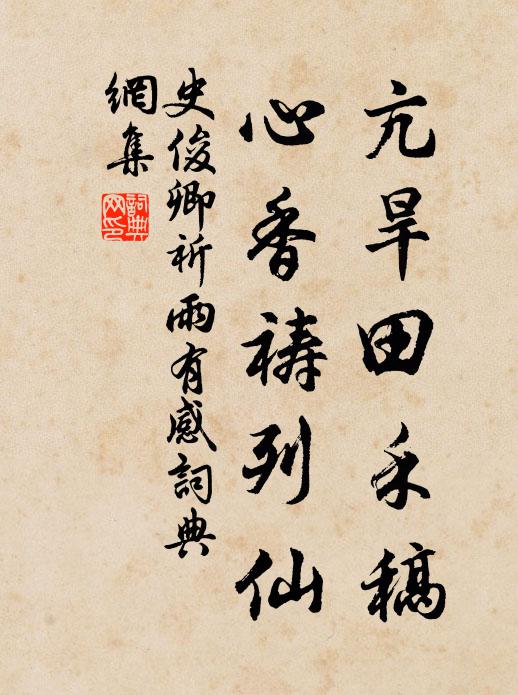 亢旱田禾稿
心香祷列仙
史俊卿祈雨有感詞典
網集
詞典
网印